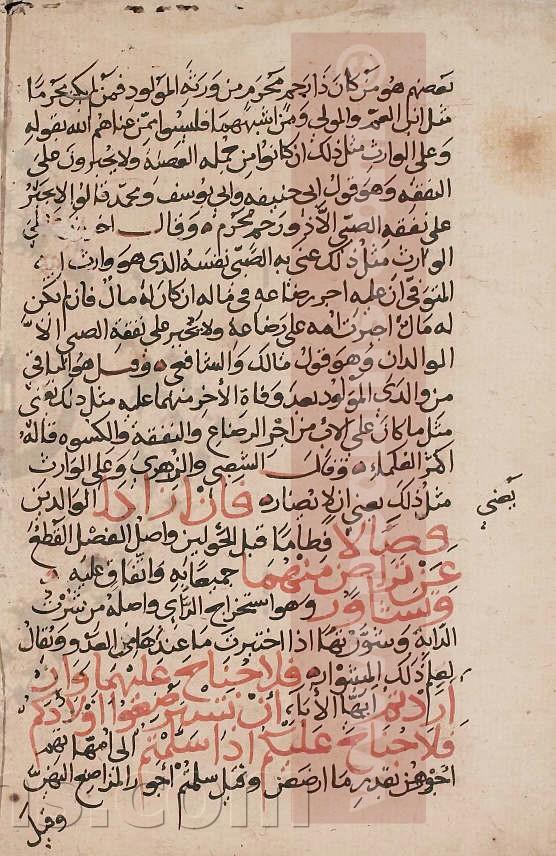 بعضهم هو من كان ذا رحم محرم من ورثة المولود فمن لم يكن محرما
مثل ابن العم والمولى ومن اشبههما فليسوا ممن عناهم الله بقوله
وعلى الوارث مثل ذلك ان كانوا من جملة العصبة ولا يجبرون على
النفقة وهو قول ابى حنيفة وابى يوسف ومحمد قالوا لا يجبر
على نفقة الصبى الا ذو رحم محرم وقال
الوارث مثل ذلك عنى به الصبى نفسه الذى هو وارث
المتوفى ان عليه اجر رضاعه فى ماله ان كان له مال فان لم يكن
له مال اجبرت امه على رضاعه ولا يجبر على نفقة الصبى الا
الوالدان وهو قول مالك والشافعى وقيل هو الباقى
من والدى المولود بعد وفاة الآخر منهما عليه مثل ذلك يعنى
مثل ما كان على الاب من اجر الرضاع والنفقة والكسوة قاله
اكثر العلماء وقال الشعبى والزهرى وعلى الوارث
مثل ذلك يعنى ان لا يضار فان ارادا الوالدين
يعني
فصالا فطاما قبل الحولين واصل الفصل القطع
عن تراض منهما جميعا به واتفاق عليه
وتشاور وهو استخراج الراى واصله من شرت
الدابة وشورتها اذا اختبرت ما عندها من العدو ويقال
لعلم ذلك المشوار فلا جناح عليهما وان
اردتم ايها الآباء ان تسترضعوا اولادكم
فلا جناح عليكم اذا سلمتم الى امهاتهم
اجورهن بقدر ما ارضعن وقيل سلمتم اجور المراضع اليهن
وقيل